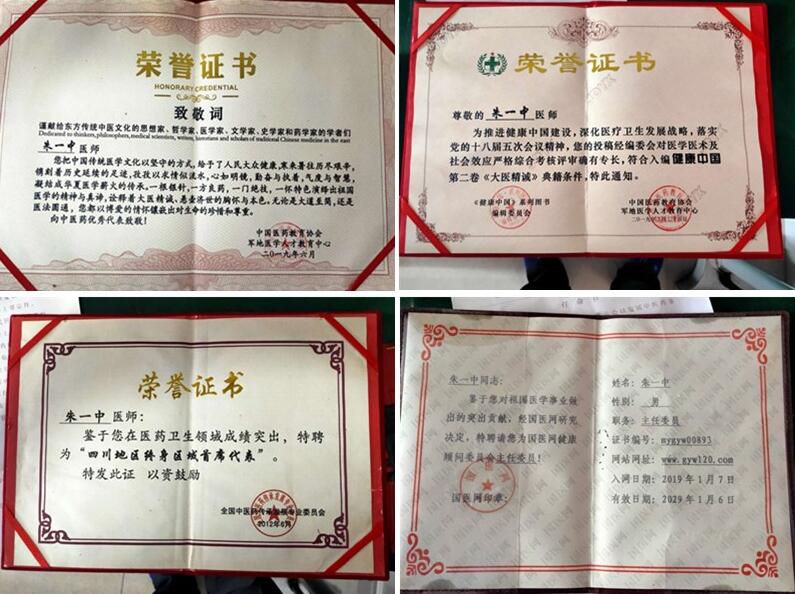 荣誉证书
HONORARY CREDENTIAL
致敬词
谨献给东方传统中医文化的思想家、哲学家、医学家、文学家、史学家和药学家的学者们
Dedicated to thinkers, philosophers, medical scientists, writers, historians and scholars of traditional Chinese medicine in the east
朱一中 医师
您把中国传统医学文化以坚守的方式,给予了人民大众健康,寒来暑往历尽艰辛,
镌刻着历史延续的足迹,孜孜以求情似流水,心如明镜,勤奋与执着,气度与智慧,
凝结成华夏医学薪火的传承。一根银针,一方良药,一门绝技,一怀特色演绎出祖国
医学的精神与真谛,诠释着大医精诚、悬壶济世的胸怀与本色。无论是大道至简,还是
医法圆通,您都以博爱的情怀镶嵌出对生命的珍惜和尊重。
向中医药优秀代表致敬!
中国医药教育协会
军地医学人才教育中心
二〇一九年六月
荣誉证书
尊敬的 朱一中 医师
为推进健康中国建设,深化医疗卫生发展战略,落实
党的十八届五次会议精神,您的投稿经编委会对医学医术及
社会效应严格综合考核评审确有专长,符合入编健康中国
第二卷《大医精诚》典籍条件,特此通知。
《健康中国》系列图书
编辑委员会
中国医药教育协会
军地医学人才教育中心
荣誉证书
朱一中 医师:
鉴于您在医药卫生领域成绩突出,特聘
为“四川地区终身区域首席代表”。
特发此证 以资鼓励
全国中医药传承发展专业委员会
2012年6月
朱一中同志:
鉴于您对祖国医学事业做
出的突出贡献,经国医网研究
决定,特聘请您为国医网健康
顾问委员会主任委员!
国医网印章:
姓名:朱一中
性别:男
职务:主任委员
证书编号:mygyw00893
网站网址:www.gyw120.com
入网日期:2019年1月7日
有效日期:2029年1月6日